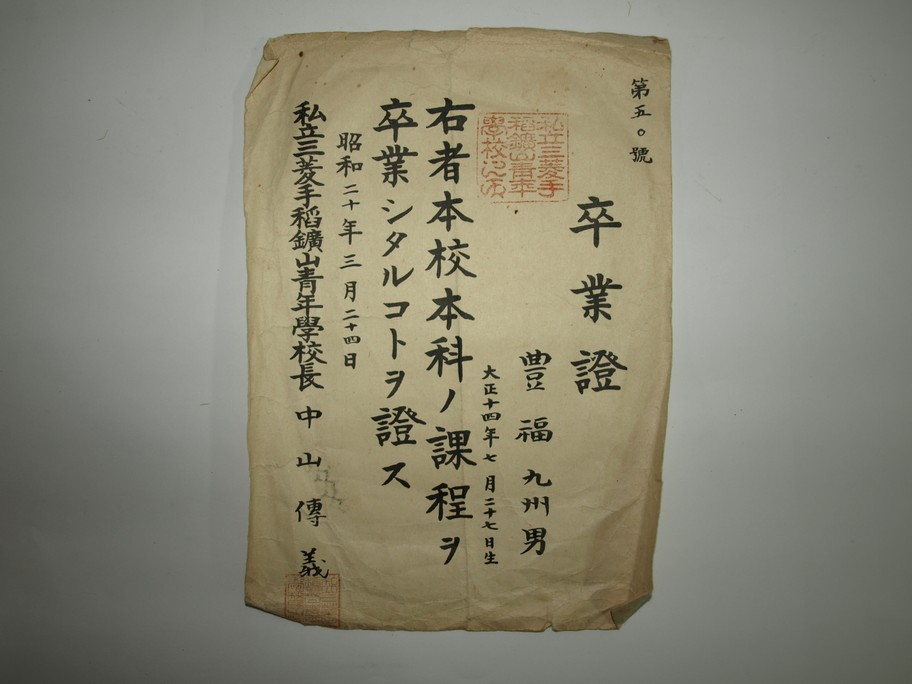 第五〇號
卒業證
豐福九州男
大正十四年七月二十七日生
私立三菱手
稻鑛山青年
學校之印
右者本校本科ノ課程ヲ
卒業シタルコトヲ證ス
昭和二十年三月二十四日
私立三菱手稻鑛山青年學校長中山傳義